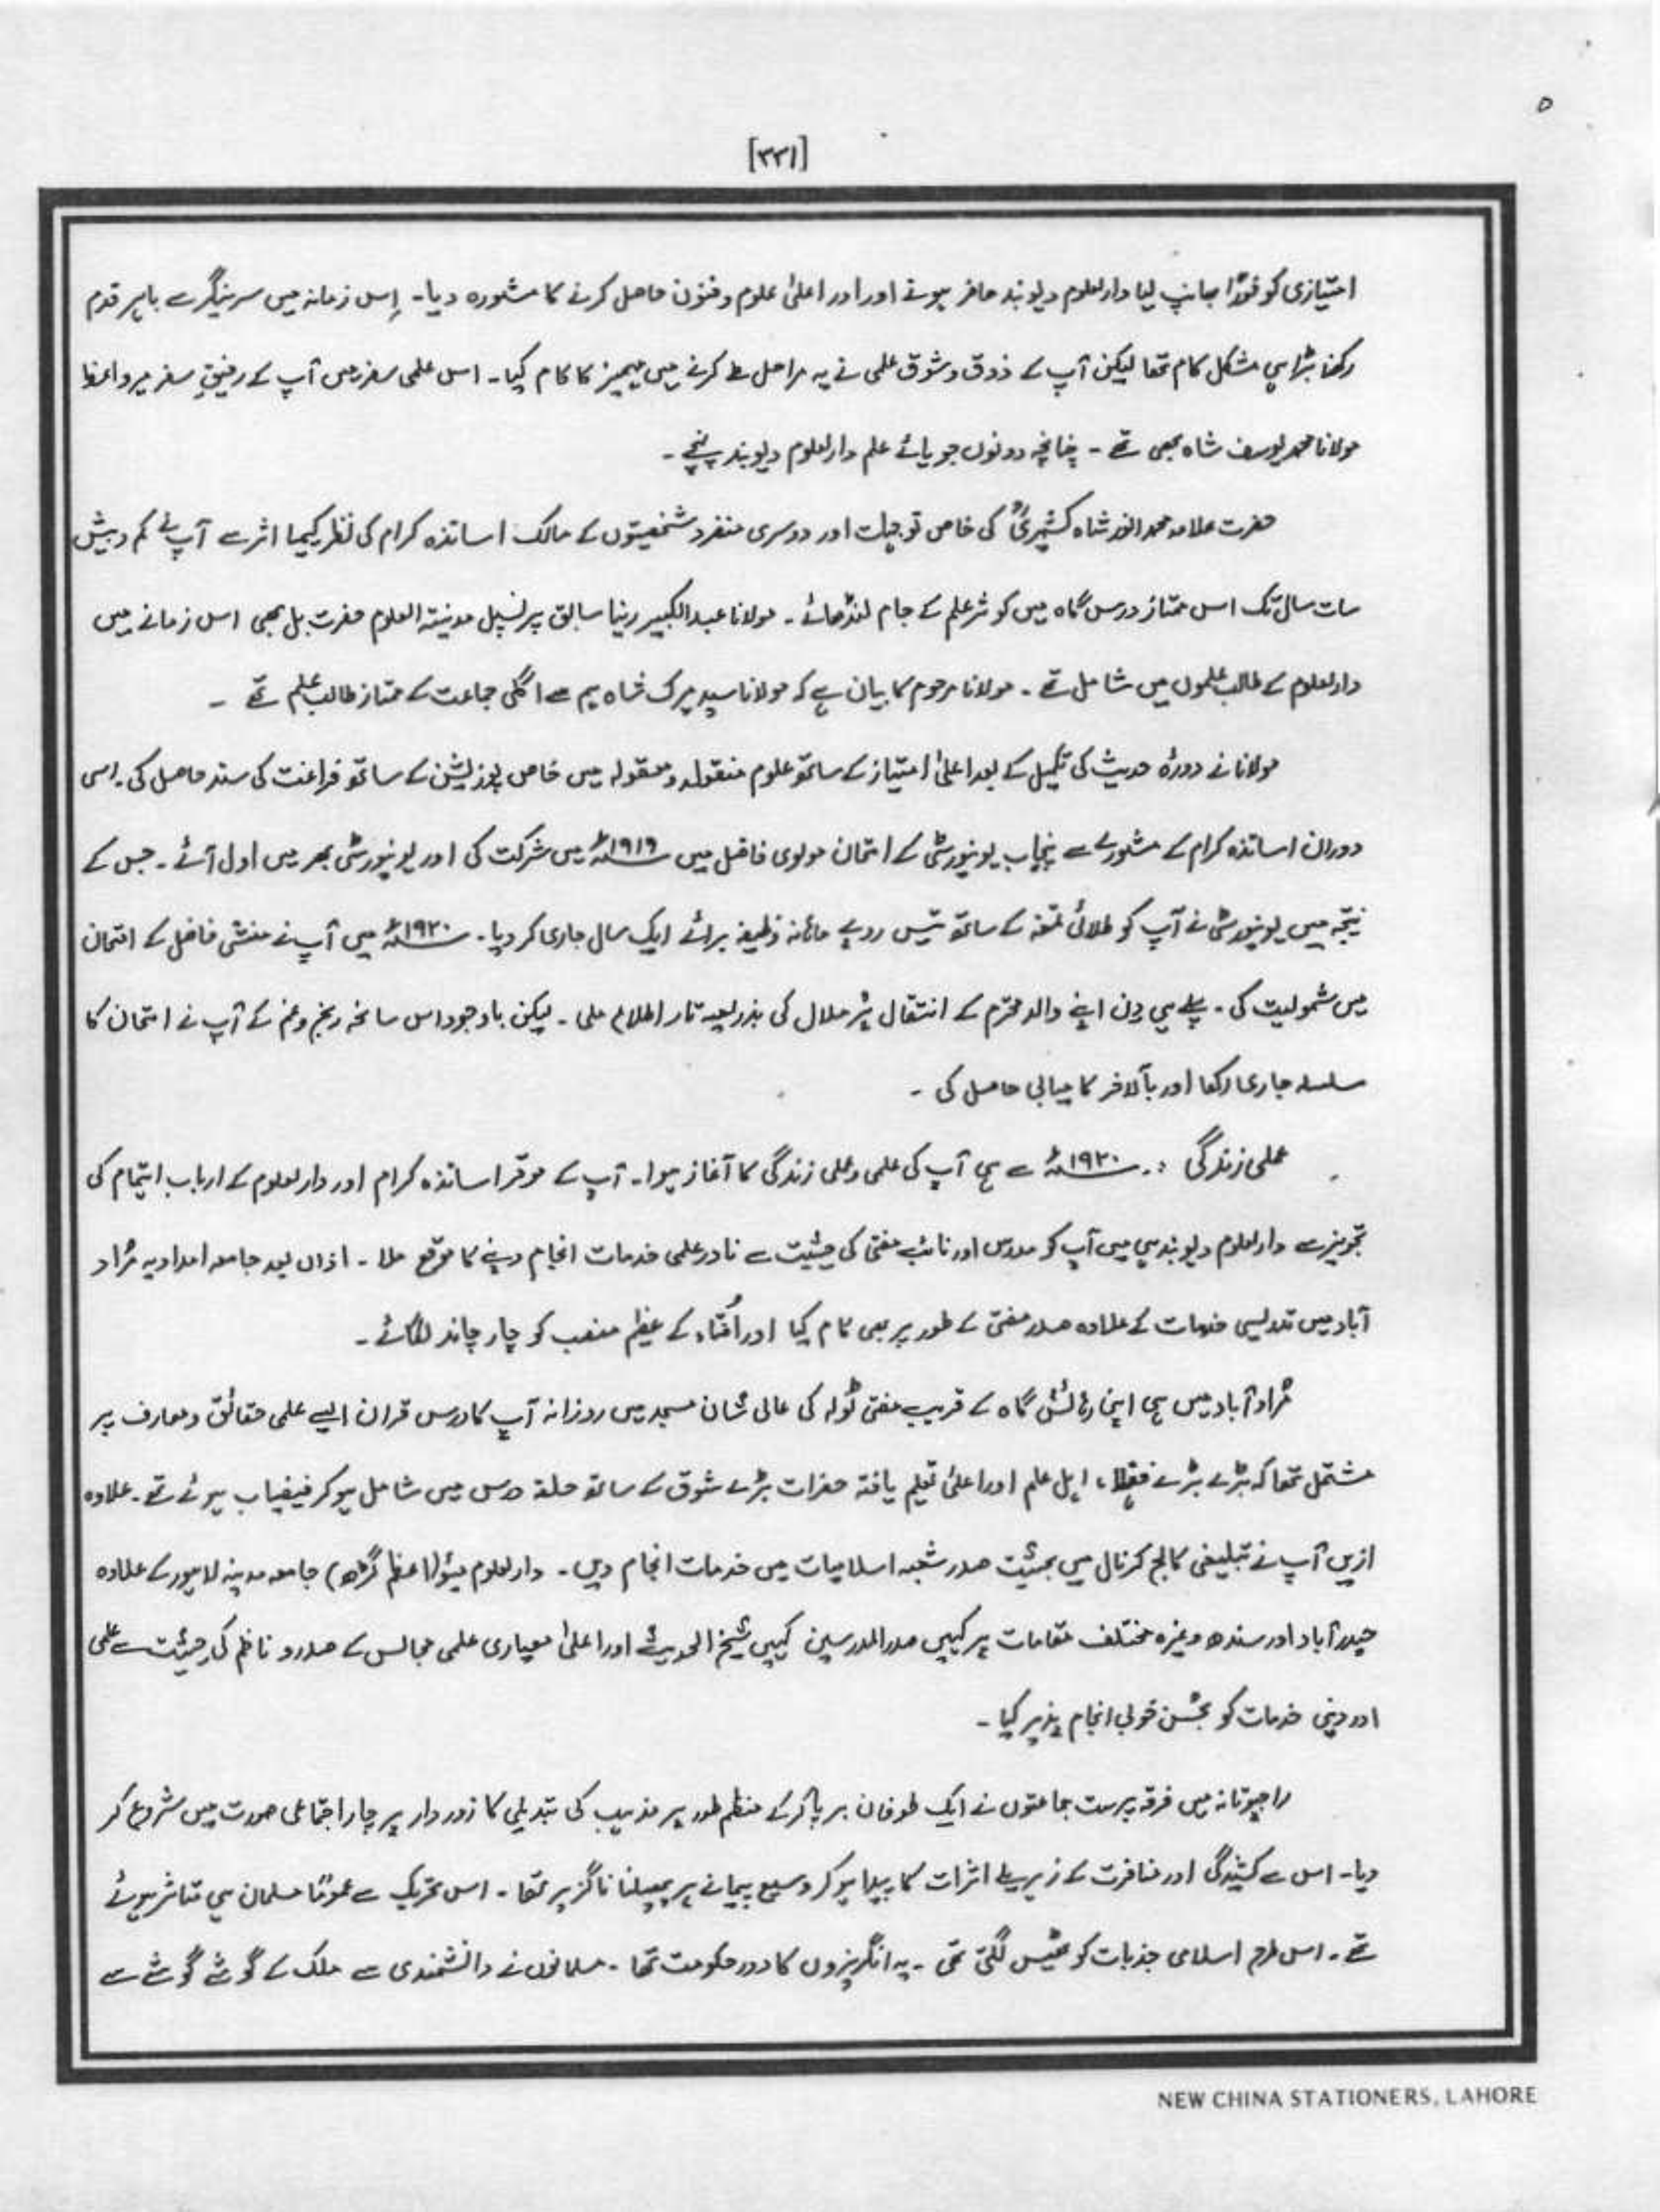 ۵
[۳۳۱]
امتیازی کو فوراً بھانپ لیا دارالعلوم دیوبند حاضر ہونے اور اور اعلیٰ علوم وفنون حاصل کرنے کا مشورہ دیا۔ اِس زمانہ میں سرینگر سے باہر قدم
رکھنا بڑا ہی مشکل کام تھا لیکن آپ کے ذوق وشوق علمی نے یہ مراحل طے کرنے میں مہمیز کا کام کیا۔ اس علمی سفر میں آپ کے رفیقِ سفر میر واعظ
مولانا محمد یوسف شاہ بھی تھے۔ چنانچہ دونوں جویائے علم دارالعلوم دیوبند پہنچے۔
حضرت علامہ محمد انور شاہ کشمیریؒ کی خاص توجہات اور دوسری منفرد شخصیتوں کے مالک اساتذہ کرام کی نظر کیمیا اثر سے آپ نے کم وبیش
سات سال تک اس ممتاز درس گاہ میں کوثر علم کے جام لنڈھائے۔ مولانا عبدالکبیر رینا سابق پرنسپل مدینتہ العلوم حضرت بل بھی اس زمانے میں
دارالعلوم کے طالب علموں میں شامل تھے۔ مولانا مرحوم کا بیان ہے کہ مولانا سید میرک شاہ ہم سے اگلی جماعت کے ممتاز طالب علم تھے ۔
مولانا نے دورۂ حدیث کی تکمیل کے بعد اعلیٰ امتیاز کے ساتھ علوم منقولہ ومعقولہ میں خاص پوزیشن کے ساتھ فراغت کی سند حاصل کی۔ اسی
دوران اساتذہ کرام کے مشورے سے پنجاب یونیورسٹی کے امتحان مولوی فاضل میں ۱۹۱۹ء میں شرکت کی اور یونیورسٹی بھر میں اول آئے۔ جس کے
نتیجہ میں یونیورسٹی نے آپ کو طلائی تمغہ کے ساتھ تیس روپے ماہانہ وظیفہ برائے ایک سال جاری کر دیا۔ ۱۹۲۰ء میں آپ نے منشی فاضل کے امتحان
میں شمولیت کی۔ پہلے ہی دِن اپنے والد محترم کے انتقال پُر ملال کی بذریعہ تار اطلاع ملی۔ لیکن باوجود اس سانحہ رنج وغم کے آپ نے امتحان کا
سلسلہ جاری رکھا اور بآلاخر کامیابی حاصل کی ۔
عملی زندگی :۔ ۱۹۲۰ء سے ہی آپ کی علمی وعملی زندگی کا آغاز ہوا۔ آپ کے موقر اساتذہ کرام اور دارالعلوم کے ارباب اہتمام کی
تجویز سے دارالعلوم دیوبند ہی میں آپ کو مدرس اور نائب مفتی کی حیثیت سے نادر علمی خدمات انجام دینے کا موقع ملا۔ ازاں بعد جامعہ امدادیہ مُراد
آباد میں تدریسی خدمات کے علاوہ صدر مفتی کے طور پر بھی کام کیا اور اُفتاء کے عظیم منصب کو چار چاند لگائے۔
مُراد آباد میں ہی اپنی رہائش گاہ کے قریب مفتی ٹولہ کی عالی شان مسجد میں روزانہ آپ کا درس قران ایسے علمی حقائق ومعارف پر
مشتمل تھا کہ بڑے بڑے فقہا، اہل علم اور اعلیٰ تعلیم یافتہ حضرات بڑے شوق کے ساتھ حلقہ درس میں شامل ہو کر فیضیاب ہوئے تھے۔ علاوہ
ازیں آپ نے تبلیغی کالج کرنال میں بحثیت صدر شعبہ اسلامیات میں خدمات انجام دیں۔ دارالعلوم مئو (اعظم گڑھ) جامعہ مدینہ لاہور کے علاوہ
حیدرآباد اور سندھ وغیرہ مختلف مقامات پر کہیں صدرالمدرسین کہیں شیخ الحدیث اور اعلیٰ معیاری علمی مجالس کے صدر و ناظم کی حیثیت سے علمی
اور دینی خدمات کو بحُسن خوبی انجام پذیر کیا۔
راجپوتانہ میں فرقہ پرست جماعتوں نے ایک طوفان برپا کرکے منظم طور پر مذہب کی تبدیلی کا زوردار پرچار اجتماعی صورت میں شروع کر
دیا۔ اس سے کشیدگی اور منافرت کے زہریلے اثرات کا پیدا ہو کر وسیع پیمانے پر پھیلنا ناگزیر تھا۔ اس تحریک سے عموماً مسلمان ہی متاثر ہوئے
تھے۔ اس طرح اسلامی جذبات کو ٹھیس لگتی تھی۔ یہ انگریزوں کا دور حکومت تھا۔ مسلمانوں نے دانشمندی سے ملک کے گوشے گوشے سے
NEW CHINA STATIONERS, LAHORE